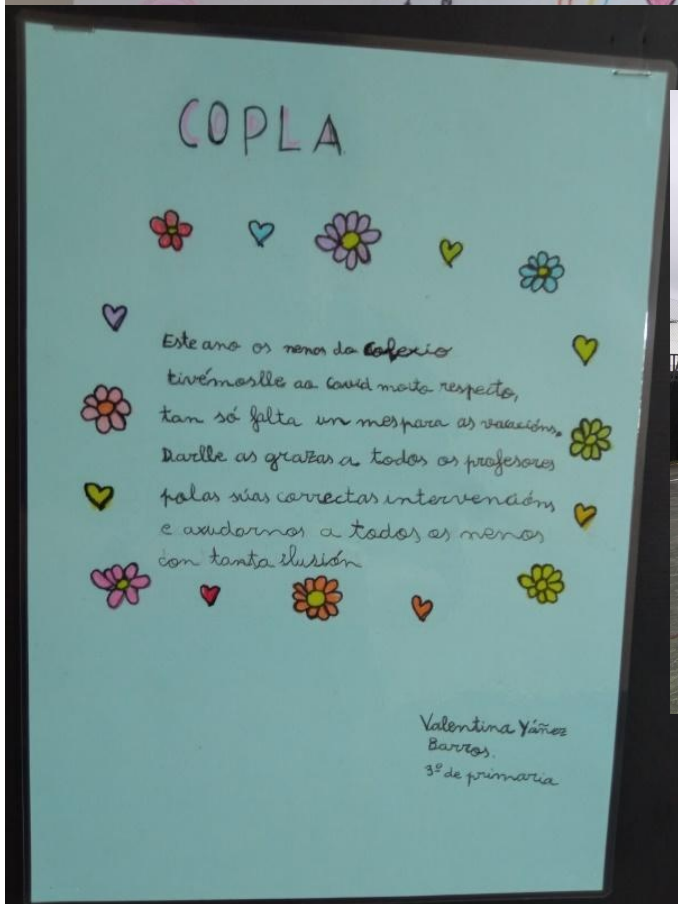 COPLA
Este ano os nenos do colexio
tivémoslle ao Covid moito respecto,
tan só falta un mes para as vacacións.
Darlle as grazas a todos os profesores
polas súas correctas intervencións
e axudarnos a todos os nenos
con tanta ilusión
Valentina Yáñez
Barros.
3º de primaria